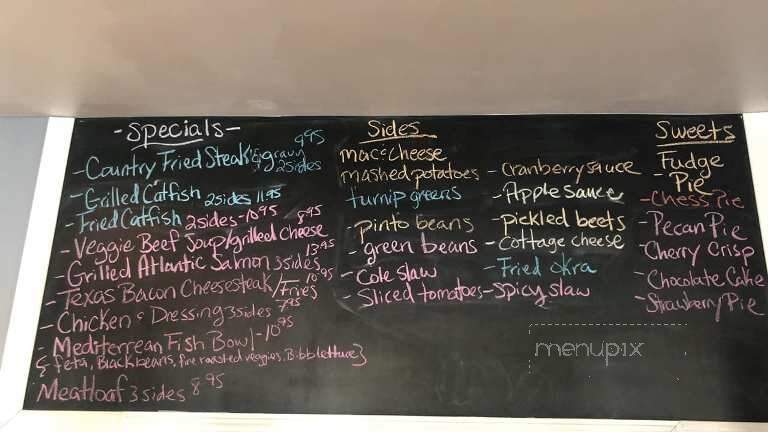 -Specials-
9.95
-Country Fried Steak & gravy
2 sides
-Grilled Catfish 2 sides 11.95
-Fried Catfish 2 sides-10.95
8.95
-Veggie Beef Soup/grilled Cheese
13.95
-Grilled Atlantic Salmon 3 sides
10.95
-Texas Bacon Cheesesteak/Fries
7.95
-Chicken & Dressing 3 sides
Mediterrean Fish Bowl-10.95
{feta, Blackbeans, fire roasted veggies, Bibb lettuce}
Meatloaf 3 sides 8.95
Sides
mac&cheese
mashed potatoes
turnip greens
-pinto beans
-green beans
-Cole slaw
-Sliced tomatoes
-Cranberry sauce
-Apple sauce
-pickled beets
-Cottage cheese
-Fried okra
-Spicy slaw
Sweets
Fudge
-Pie
-Chess Pie
-Pecan Pie
-Cherry Crisp
-Chocolate Cake
-Strawberry Pie
menupix